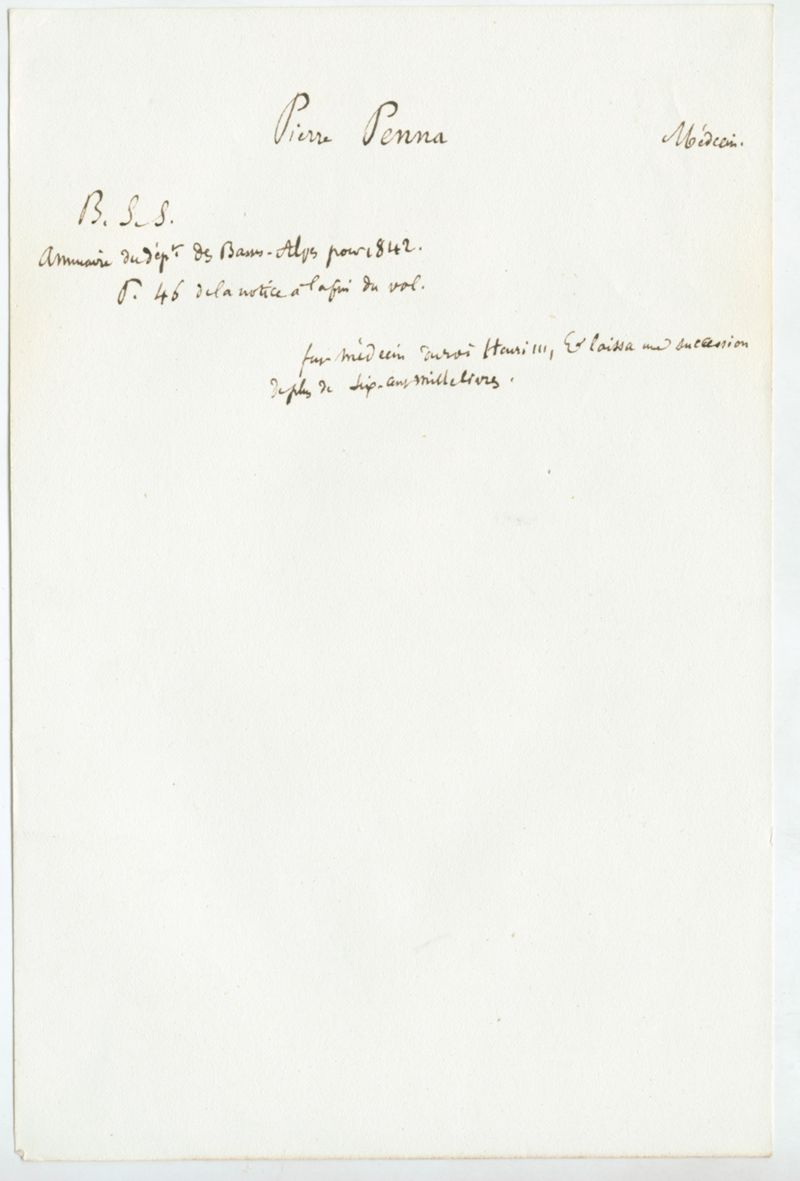 Pierre Penna Médecin.
B. S. S.
Annuaire du dépt. des Basses-Alpes pour 1842.
P. 46 de la notice à la fin du vol.
fut médecin du roi Henri III, & laissa une succession
de plus de six-cent mille livres.